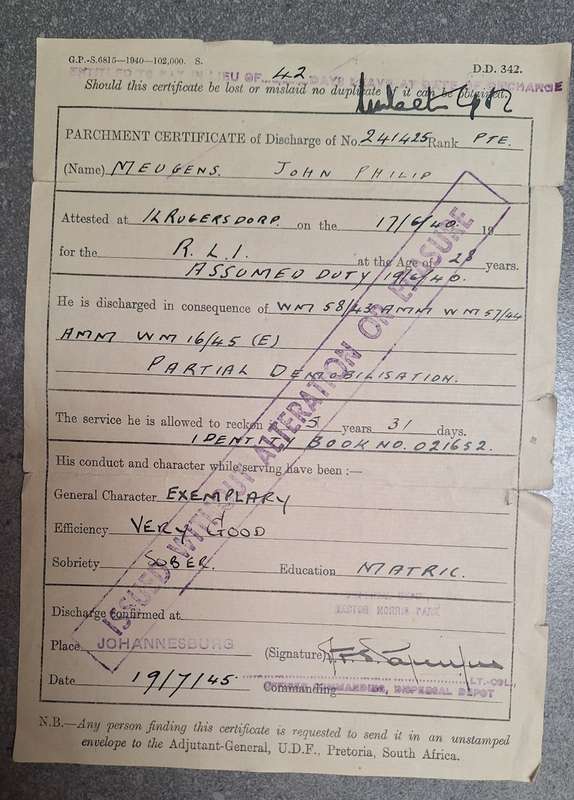 G.P.-S.6815—1940—102,000. S. D.D. 342.
ENTITLED TO PAY IN LIEU OF 42 DAYS LEAVE AT DATE OF DISCHARGE
Should this certificate be lost or mislaid no duplicate of it can be obtained.
PARCHMENT CERTIFICATE of Discharge of No. 241425 Rank PTE.
(Name) MEUGENS. JOHN PHILIP
Attested at KRUGERSDORP. on the 17/6/40. 19
for the R.L.I. at the Age of 28 years.
ASSUMED DUTY 19/6/40.
He is discharged in consequence of WM 58/43 AMM WM 57/44
AMM WM 16/45 (E)
PARTIAL DEMOBILISATION.
The service he is allowed to reckon 5 years 31 days.
IDENTITY BOOK NO. 021652.
His conduct and character while serving have been :—
General Character EXEMPLARY
Efficiency VERY GOOD
Sobriety SOBER. Education MATRIC.
ISSUED WITHOUT ALTERATION OR ERASURE
Discharge confirmed at
HECTOR NORRIS PARK
Place JOHANNESBURG (Signature)
LT.-COL.,
Date 19/7/45 Commanding
OFFICER COMMANDING, DISPERSAL DEPOT
N.B.—Any person finding this certificate is requested to send it in an unstamped
envelope to the Adjutant-General, U.D.F., Pretoria, South Africa.